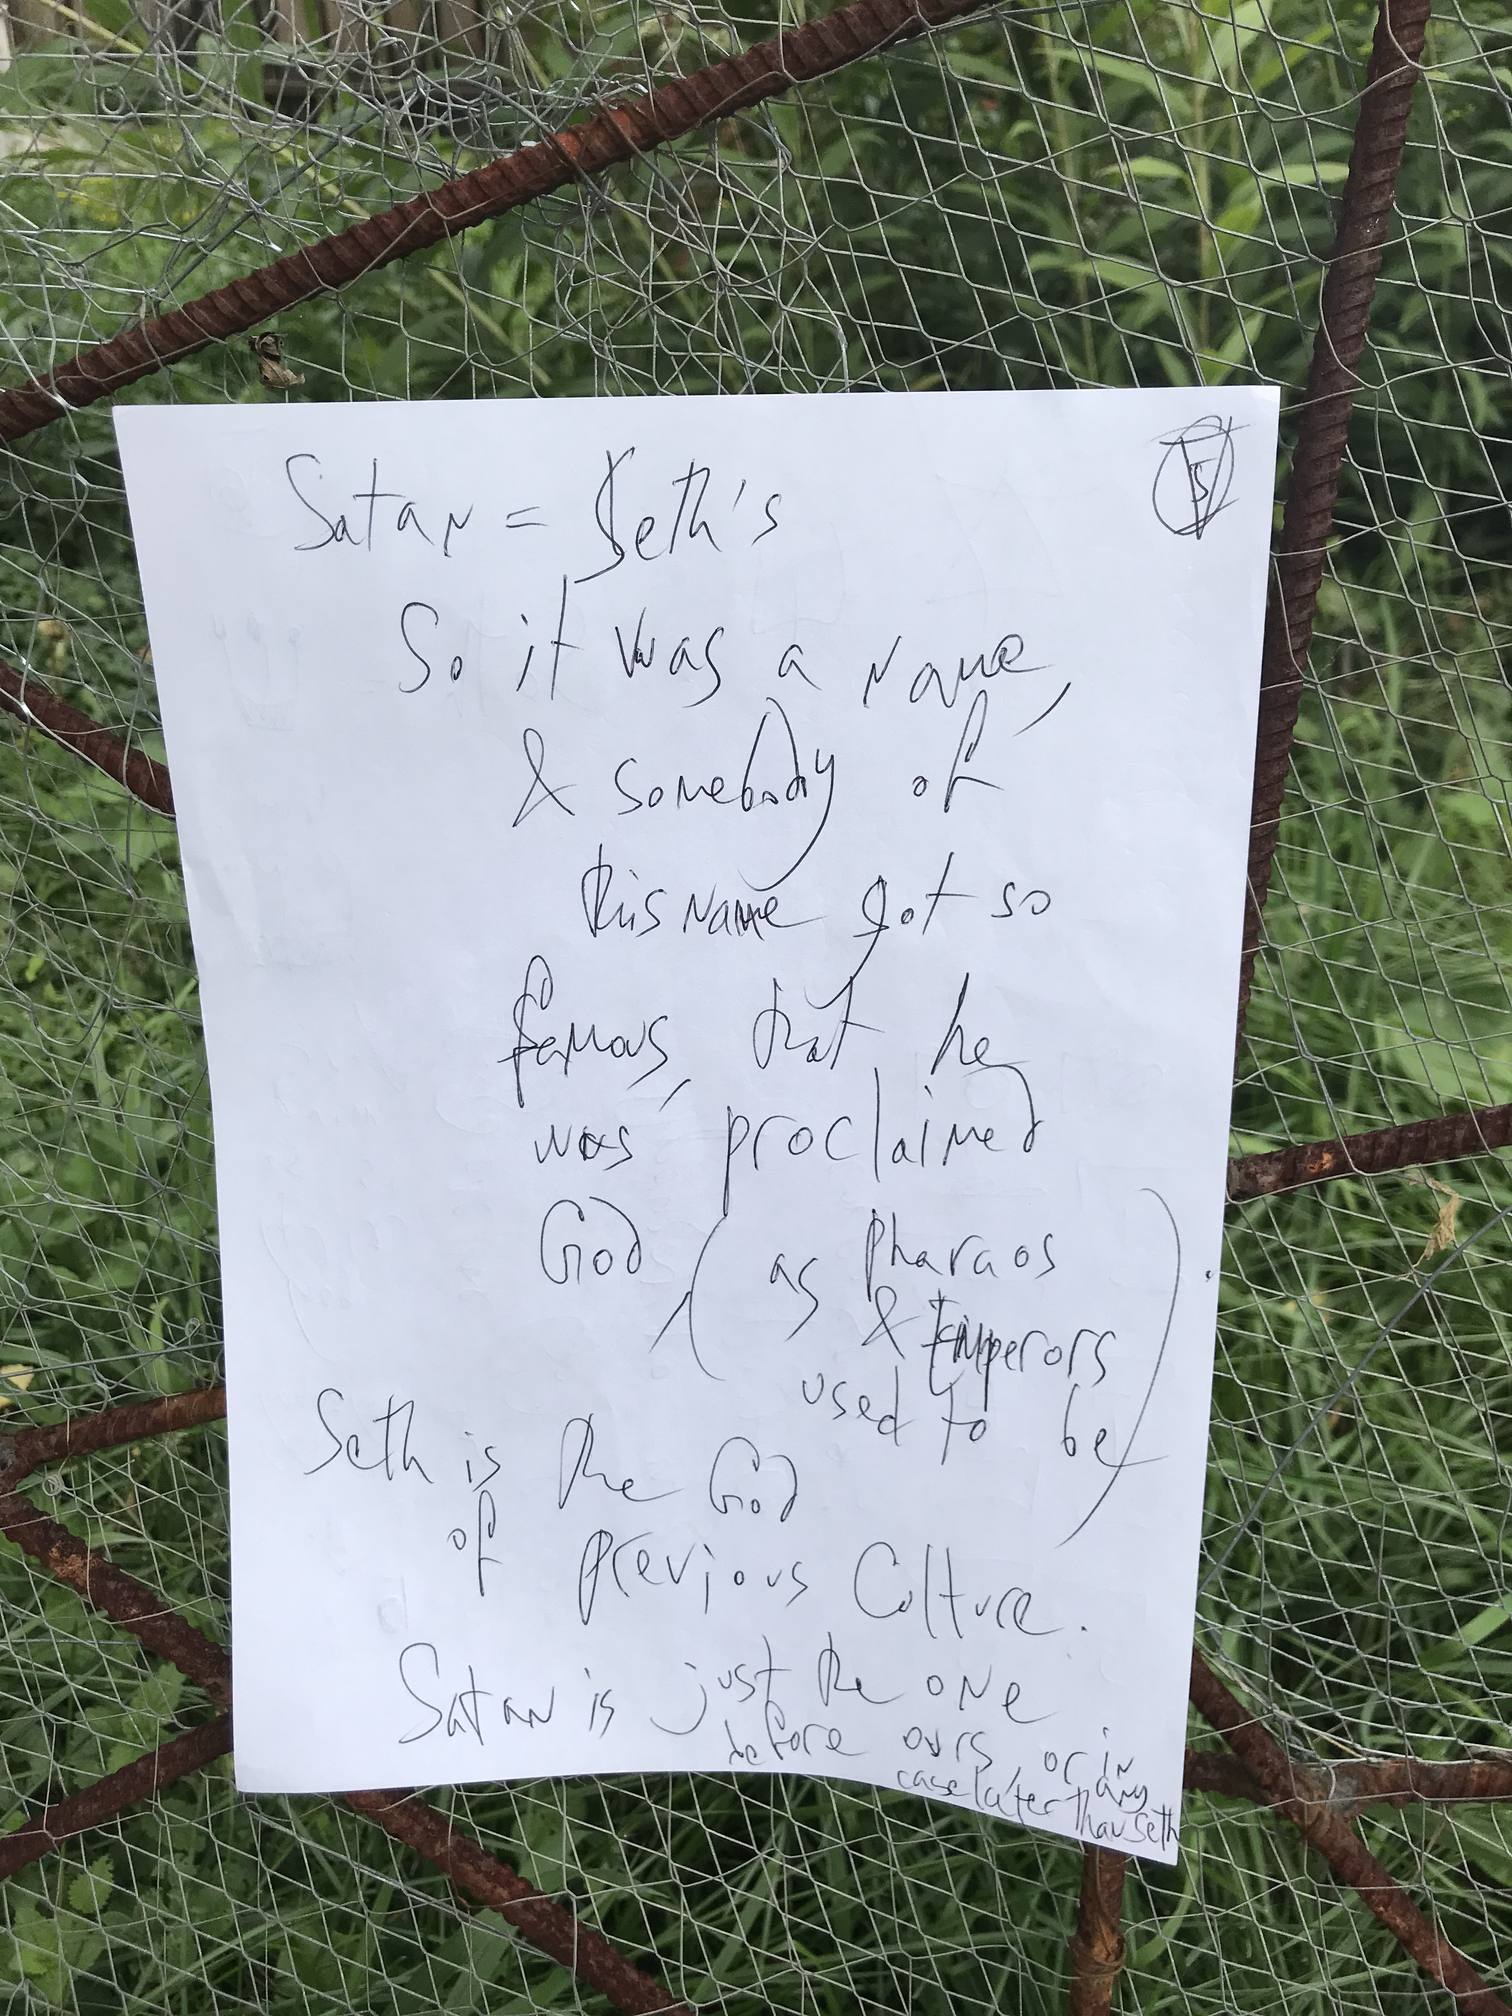 Satan = Seth's
So it was a name,
& somebody of
this name got so
famous, that he
was proclaimed
God, (as Pharaos
& Emperors
used to be)
Seth is the God
of previous Culture.
Satan is just the one
before ours or in
any
case later than Seth